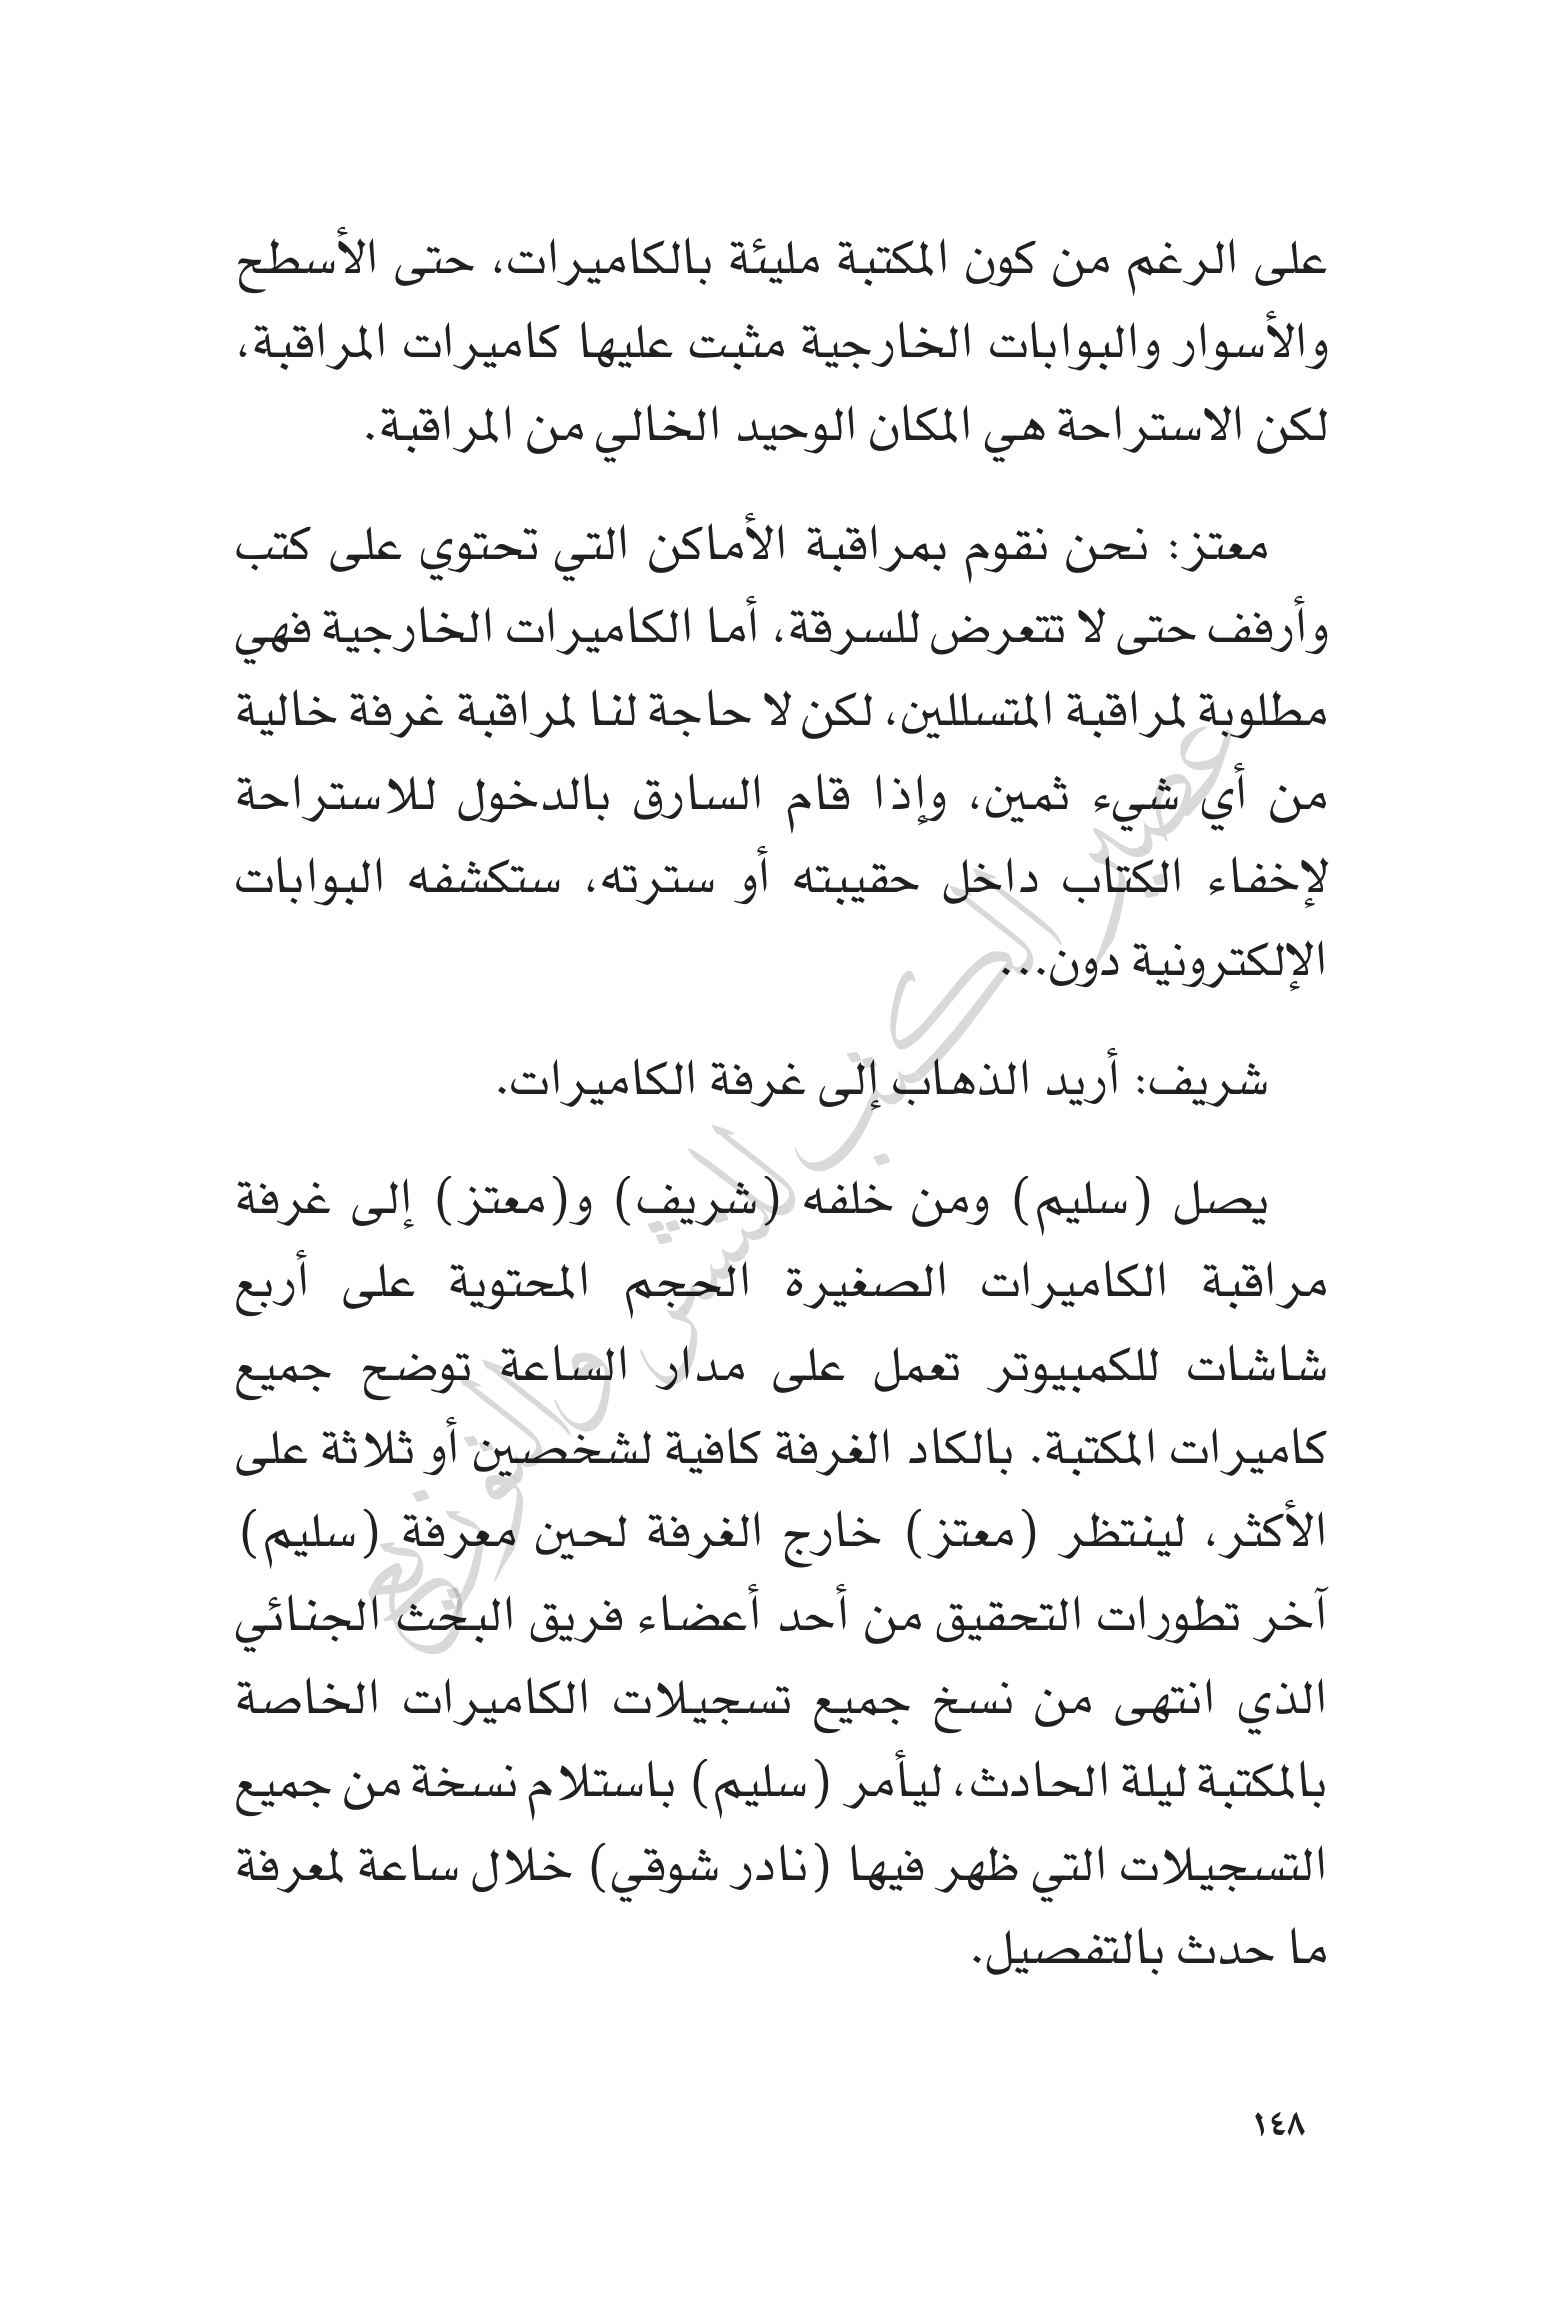 على الرغم من كون المكتبة مليئة بالكاميرات، حتى الأسطح
والأسوار والبوابات الخارجية مثبت عليها كاميرات المراقبة،
لكن الاستراحة هي المكان الوحيد الخالي من المراقبة.
معتز: نحن نقوم بمراقبة الأماكن التي تحتوي على كتب
وأرفف حتى لا تتعرض للسرقة، أما الكاميرات الخارجية فهي
مطلوبة لمراقبة المتسللين، لكن لا حاجة لنا لمراقبة غرفة خالية
من أي شيء ثمين، وإذا قام السارق بالدخول للاستراحة
لإخفاء الكتاب داخل حقيبته أو سترته، ستكشفه البوابات
الإلكترونية دون...
شريف: أريد الذهاب إلى غرفة الكاميرات.
يصل (سليم) ومن خلفه (شريف) و(معتز) إلى غرفة
مراقبة الكاميرات الصغيرة الحجم المحتوية على أربع
شاشات للكمبيوتر تعمل على مدار الساعة توضح جميع
كاميرات المكتبة. بالكاد الغرفة كافية لشخصين أو ثلاثة على
الأكثر، لينتظر (معتز) خارج الغرفة لحين معرفة (سليم)
آخر تطورات التحقيق من أحد أعضاء فريق البحث الجنائي
الذي انتهى من نسخ جميع تسجيلات الكاميرات الخاصة
بالمكتبة ليلة الحادث، ليأمر (سليم) باستلام نسخة من جميع
التسجيلات التي ظهر فيها (نادر شوقي) خلال ساعة لمعرفة
ما حدث بالتفصيل.
١٤٨
عصير الكتب للنشر والتوزيع